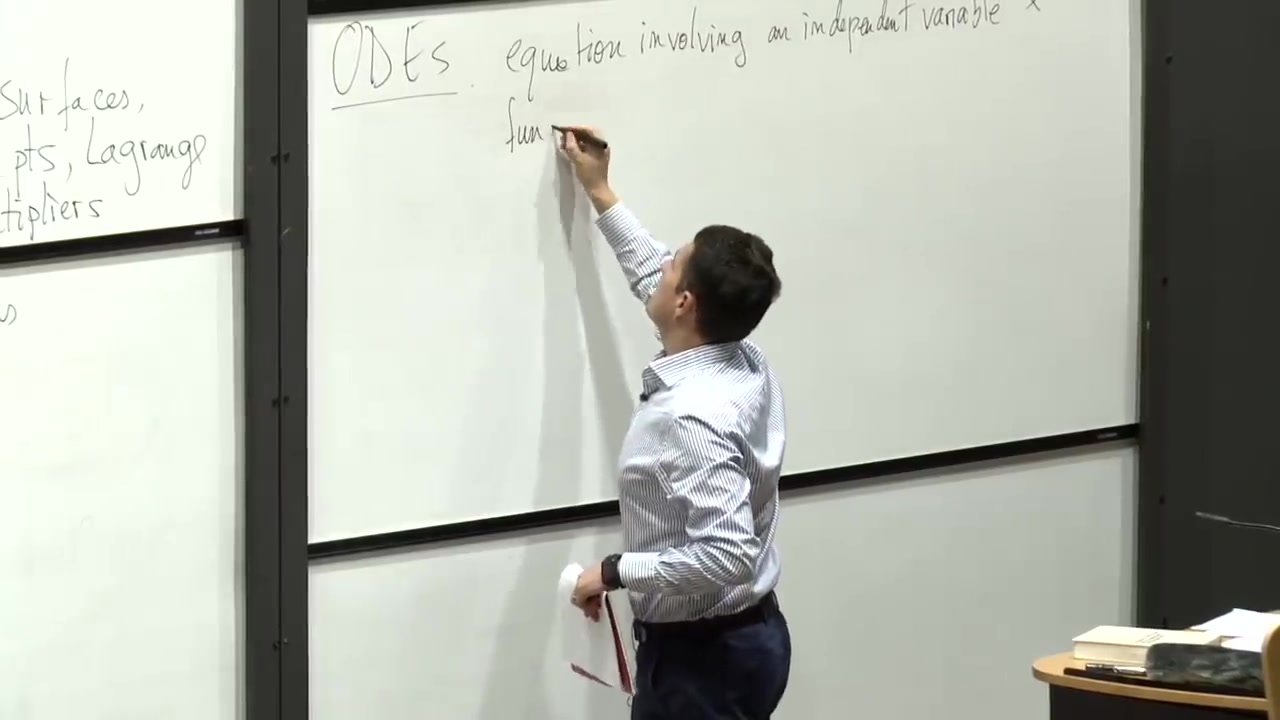 surfaces,
pts, Lagrange
tipliers
s
ODEs. equation involving an independent variable x
fun